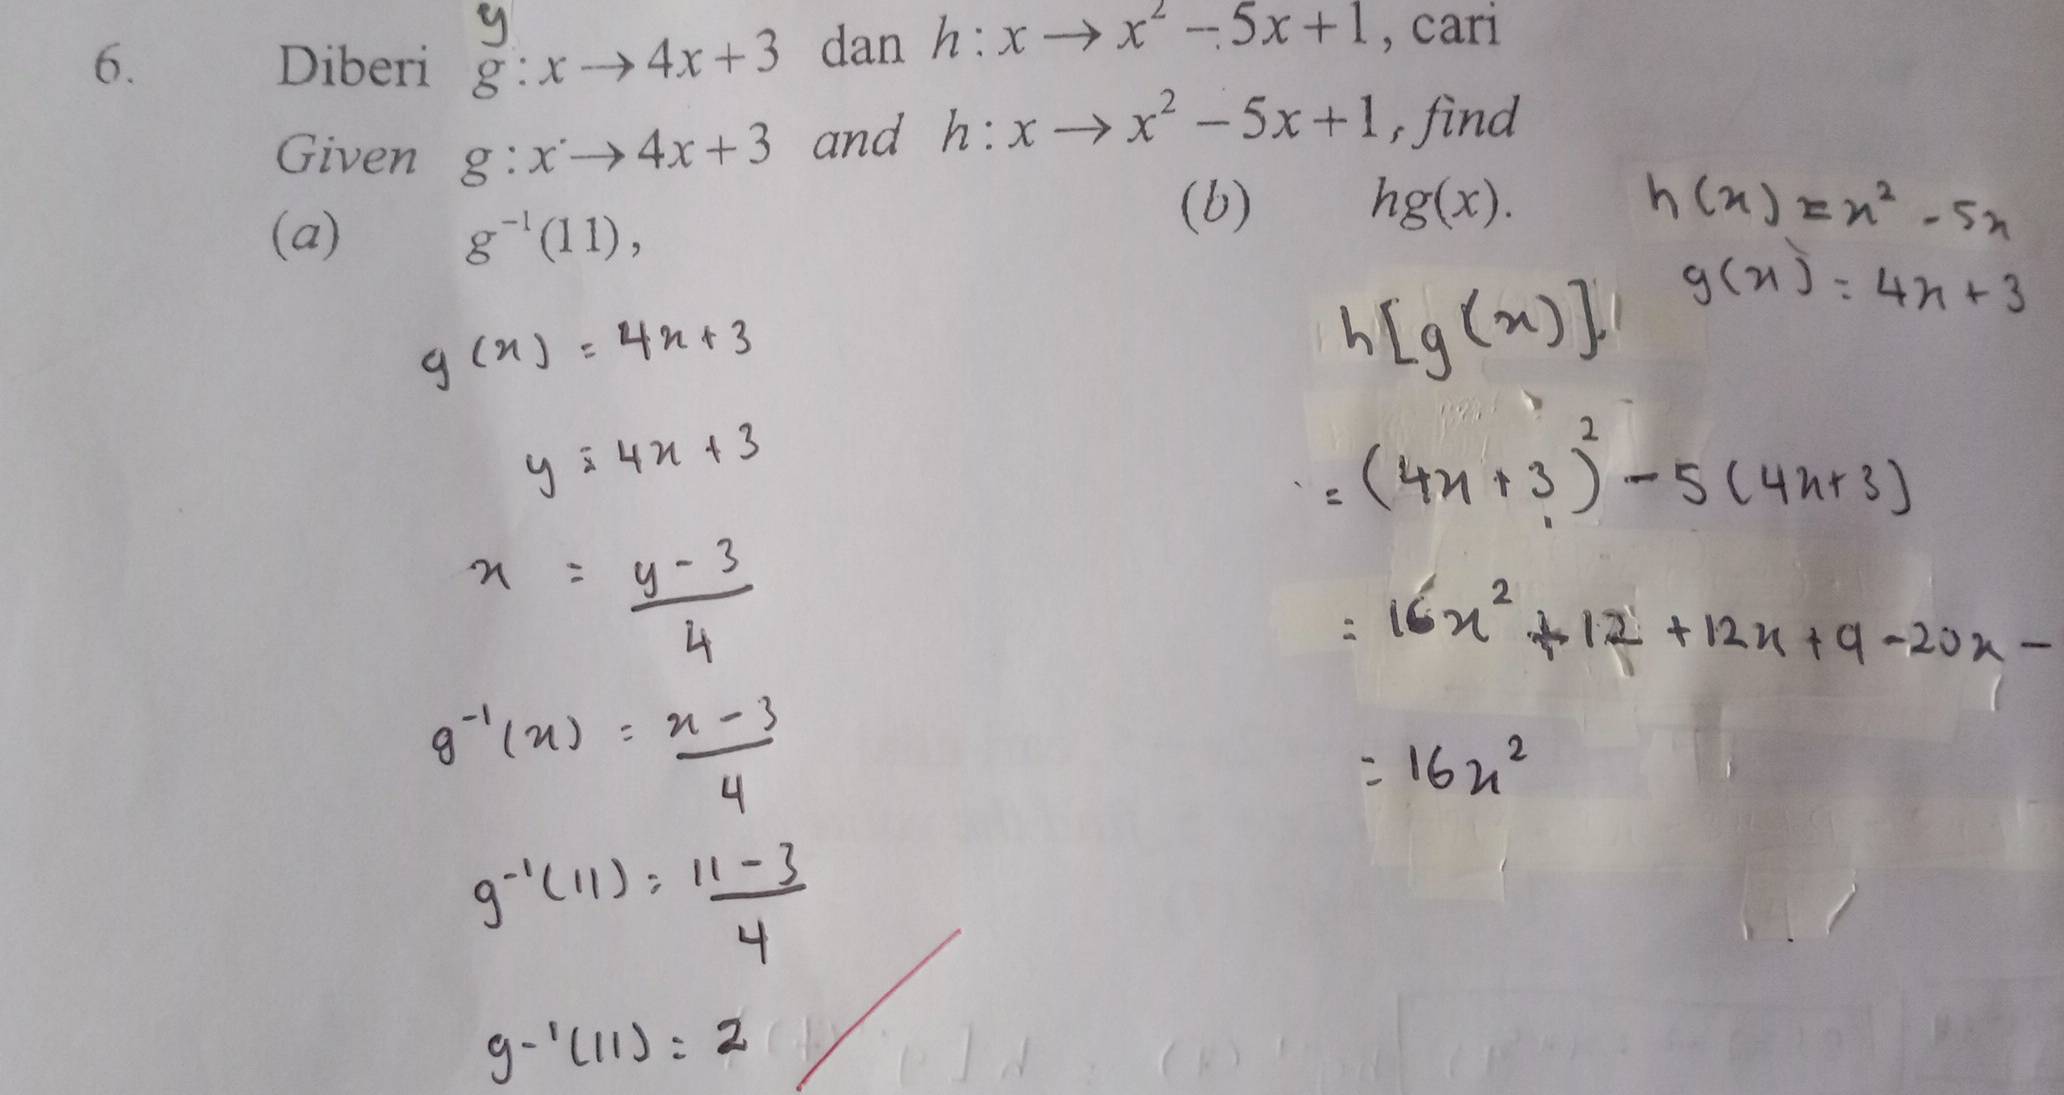 y
6. Diberi g : x → 4x + 3 dan h : x → x² − 5x + 1, cari
Given g : x → 4x + 3 and h : x → x² − 5x + 1, find
(a) g⁻¹(11), (b) hg(x).
h(x) = x² - 5x
g(x) = 4x + 3
g(x) = 4x + 3
y = 4x + 3
x = (y - 3)/4
g⁻¹(x) = (x - 3)/4
g⁻¹(11) = (11 - 3)/4
g⁻¹(11) = 2
h[g(x)]
= (4x + 3)² - 5(4x + 3)
= 16x² + 12 + 12x + 9 - 20x -
= 16x²